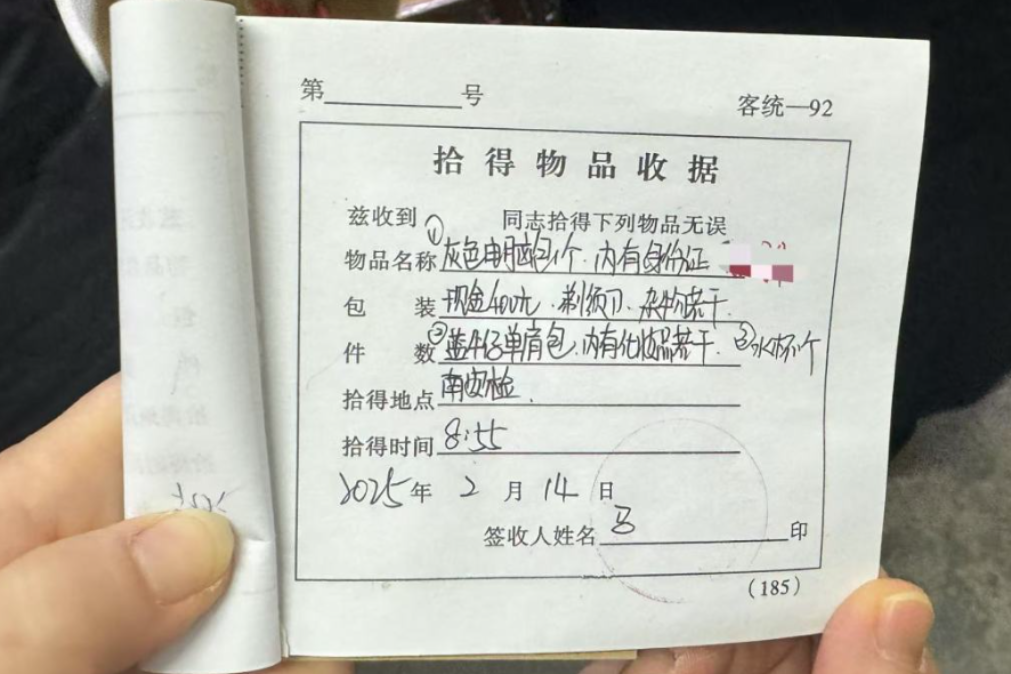 第 号
客统—92
拾得物品收据
兹收到 同志拾得下列物品无误
物品名称 ①灰色电脑包1个.内有身份证
包装 现金400元.剃须刀.杂物若干.
件数 ②蓝牛仔单肩包.内有化妆品若干.③水杯1个
拾得地点 南安检.
拾得时间 8:55
2025年2月14日
签收人姓名 马 印
(185)